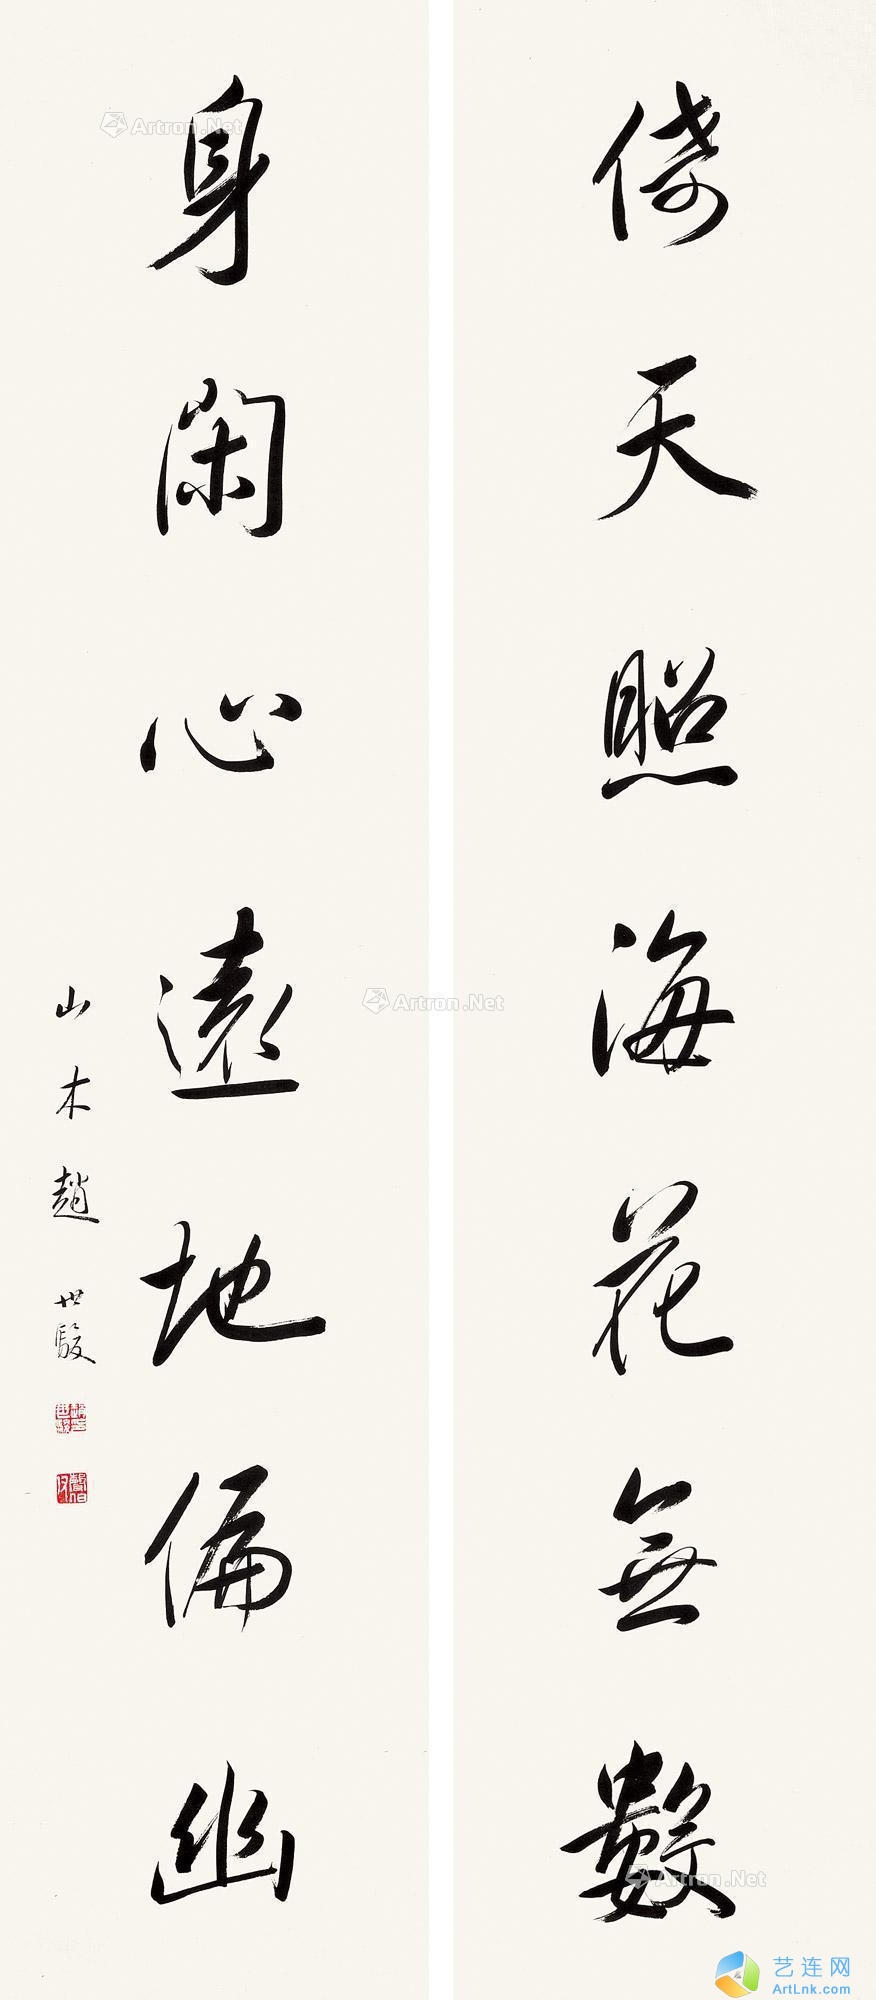 倚天照海花無數
身閑心遠地偏幽
山木趙世駿
Artron.Net
Artron.Net
Artron.Net
艺连网
ArtLnk.com